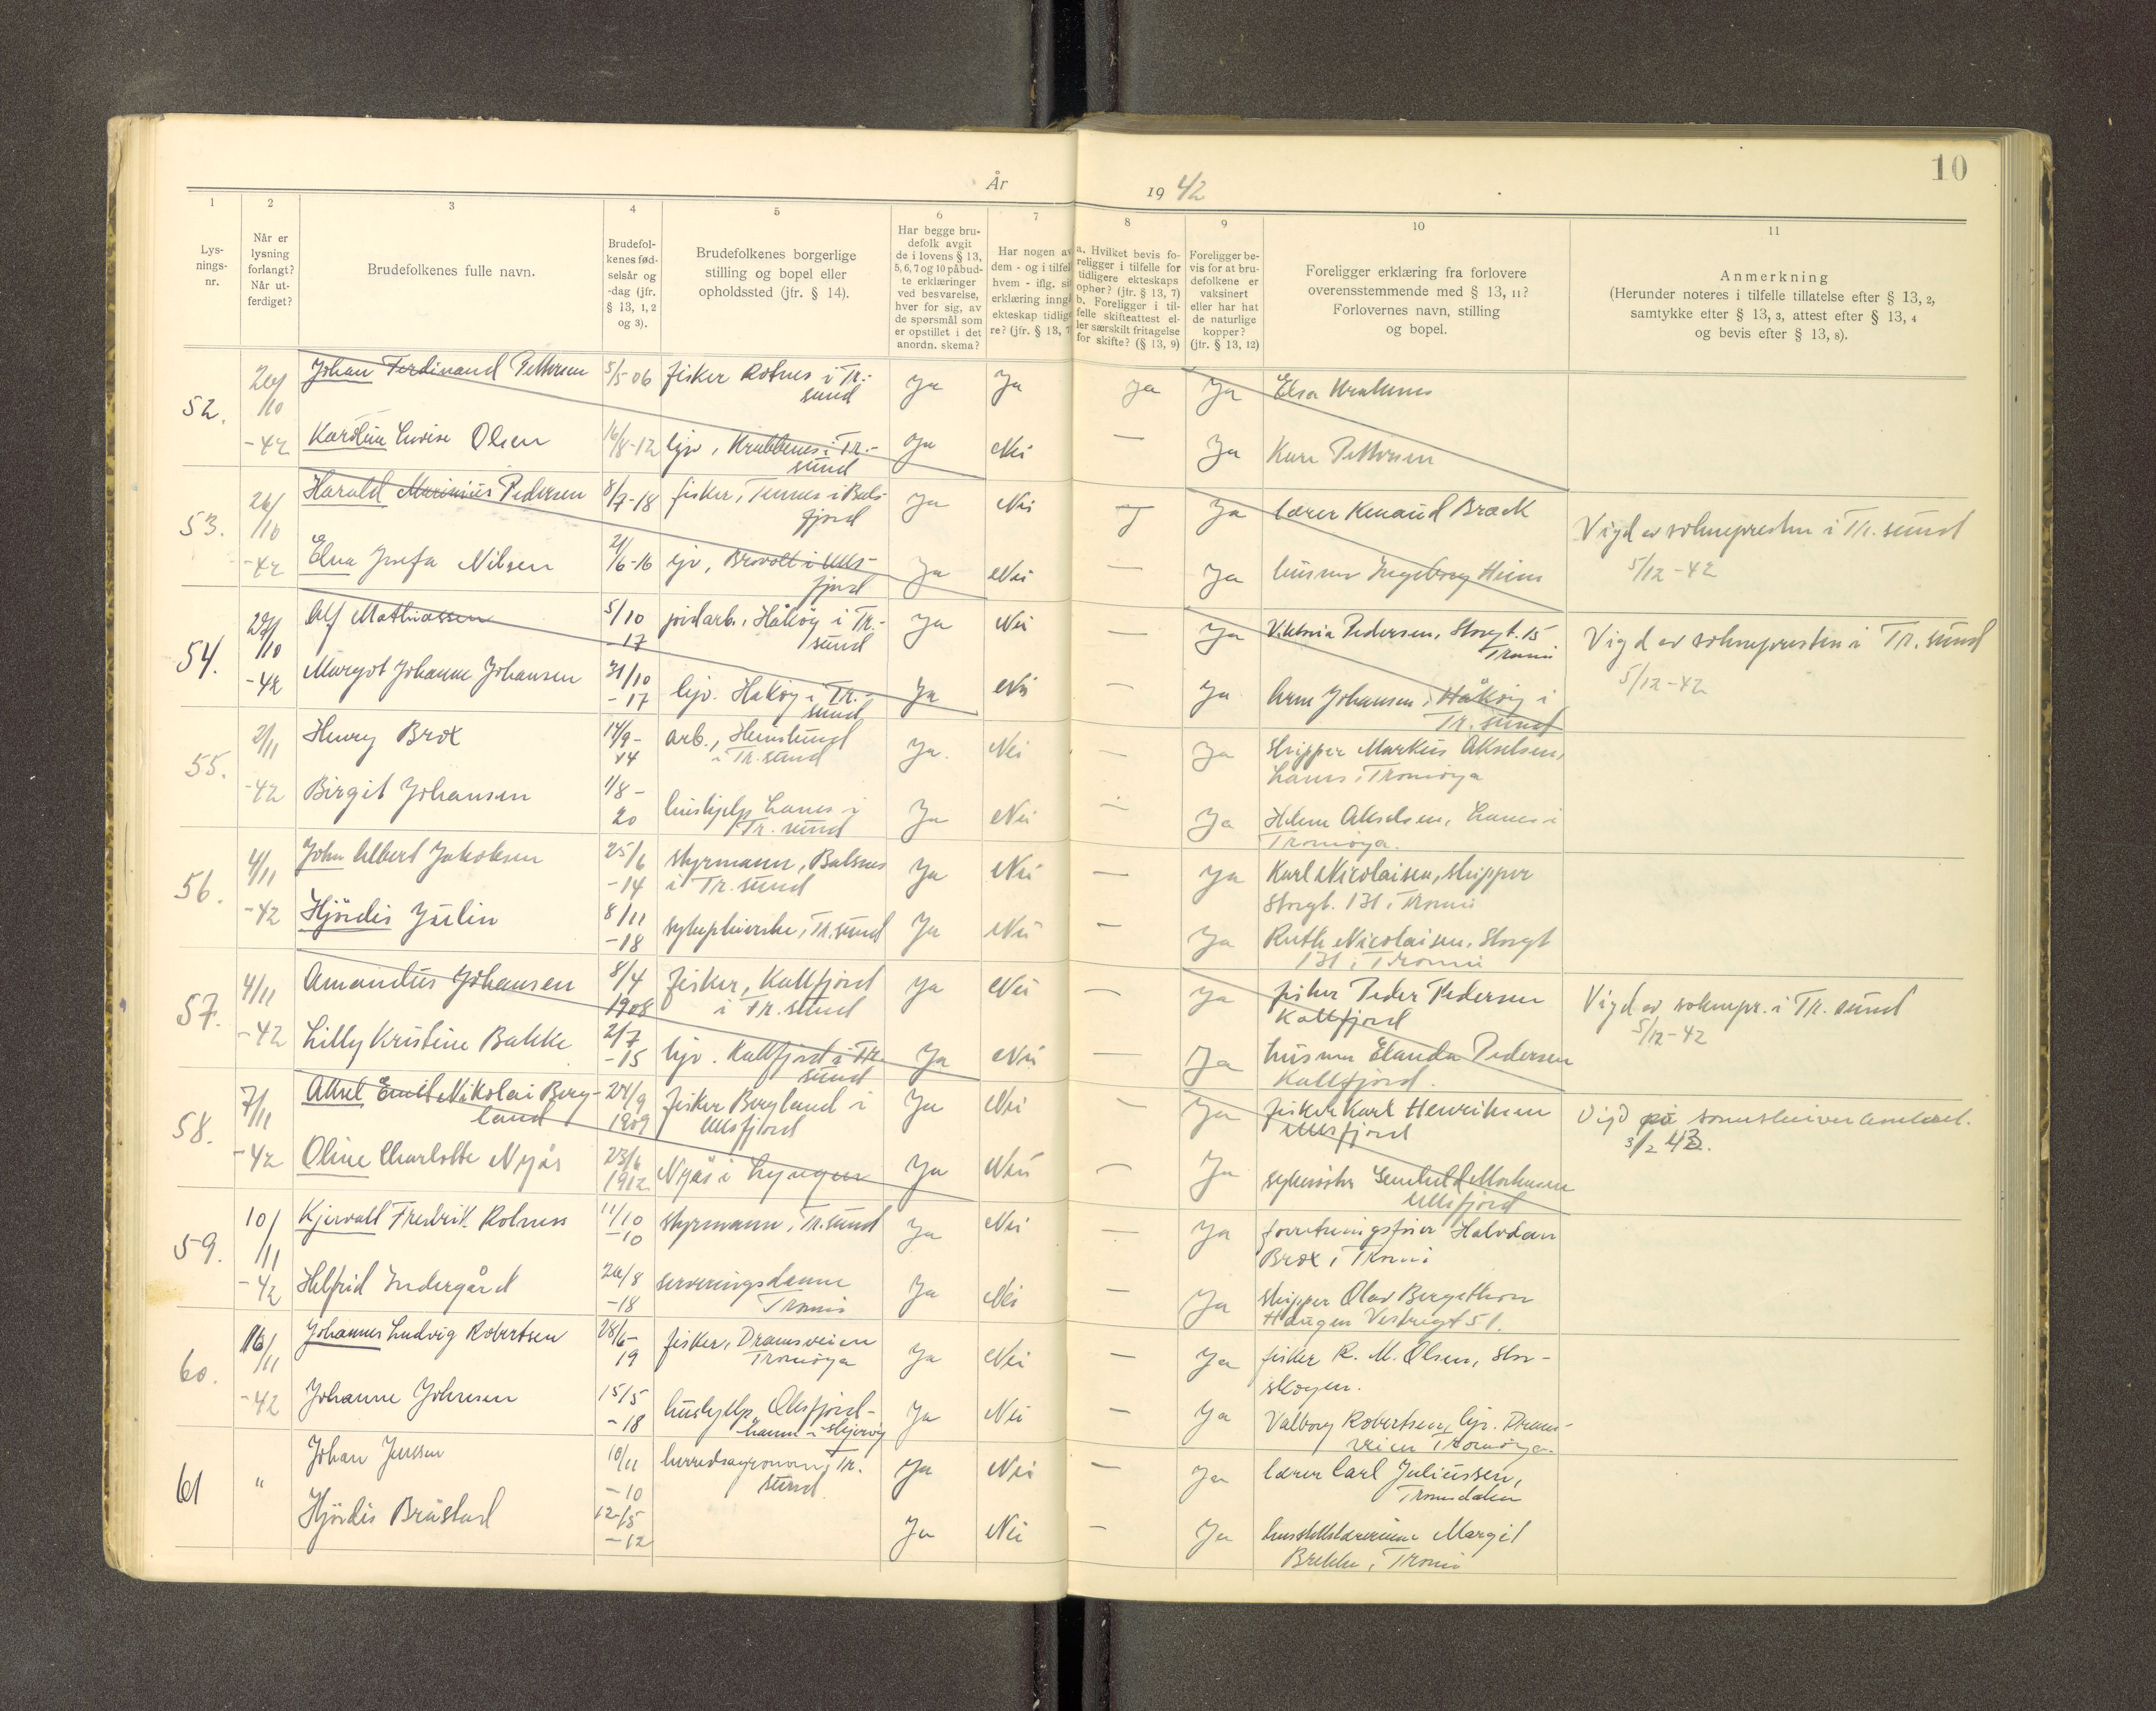 10
År 1942
1
Lys-
nings-
nr.
2
Når er
lysning
forlangt?
Når ut-
ferdiget?
3
Brudefolkenes fulle navn.
4
Brudefol-
kenes fød-
selsår og
-dag (jfr.
§ 13, 1, 2
og 3).
5
Brudefolkenes borgerlige
stilling og bopel eller
opholdssted (jfr. § 14).
6
Har begge bru-
defolk avgit
de i lovens § 13,
5, 6, 7 og 10 påbud-
te erklæringer
ved besvarelse,
hver for sig, av
de spørsmål som
er opstillet i det
anordn. skema?
7
Har nogen av
dem - og i tilfel
hvem - iflg. si
erklæring inng
ekteskap tidlig
re? (jfr. § 13, 7
8
a. Hvilket bevis fo-
religger i tilfelle for
tidligere ekteskaps
ophør? (jfr. § 13, 7)
b. Foreligger i til-
felle skifteattest el-
ler særskilt fritagelse
for skifte? (§ 13, 9)
9
Foreligger be-
vis for at bru-
defolkene er
vaksinert
eller har hat
de naturlige
kopper?
(jfr. § 13, 12)
10
Foreligger erklæring fra forlovere
overensstemmende med § 13, 11?
Forlovernes navn, stilling
og bopel.
11
Anmerkning
(Herunder noteres i tilfelle tillatelse efter § 13, 2,
samtykke efter § 13, 3, attest efter § 13, 4
og bevis efter § 13, 8).
52. 26/10 -42
Johan Ferdinand Pettersen 5/5-06 fisker Rotnes i Tr.-
sund Ja Ja Ja Ja Elsa
Karoline Lovise Olsen 16/8-12 hjv, Krabbenes i Tr.-
sund Ja Nei — Ja Kare Pettersen
53. 26/10 -42
Harald Marinius Pedersen 8/7-18 fisker, Tennes i Bals-
fjord Ja Nei — Ja lærer Braek
Vigd av soknepresten i Tr. sund
5/12-42
Elna Josefa Nilsen 21/6-16 hjv, Brovoll i Ulls-
fjord Ja Nei — Ja husmor Ingeborg Heim
54. 27/10 -42
Alf Mathiassen 5/10
17 jordarb., Håkøy i Tr.-
sund Ja Nei — Ja Viktoria Pedersen, Storgt. 15
Tromsø
Vigd av soknepresten i Tr. sund
5/12-42
Margot Johanne Johansen 31/10
-17 hjv. Håkøy i Tr.-
sund Ja Nei — Ja Arne Johansen, Håkøy i
Tr. sund
55. 2/11 -42
Henry Brox 14/9-
14 arb.,
i Tr. sund Ja. Nei — Ja skipper Markus Akselsen,
Lanes i Tromsøya
Birgit Johansen 1/8-
20 hushjelp Lanes i
Tr. sund Ja Nei — Ja Helene Akselsen, Lanes i
Tromsøya.
56. 4/11 -42
John Albert Jakobsen 25/6
-14 styrmann, Balsnes
i Tr. sund Ja Nei — Ja Karl Nicolaisen, skipper
Storgt. 131, Tromsø
Hjördis Julin 8/11
-18 sykepleierske, Tr. sund Ja Nei — Ja Ruth Nicolaisen, Storgt
131, Tromsø
57. 4/11 -42
Amandus Johansen 8/4
1908 fisker, Kallfjord
i Tr. sund Ja Nei — Ja fisker Peder Pedersen
Kallfjord
Vigd av soknepr. i Tr. sund
5/12-42
Lilly Kristine Bakke 2/7
-15 hjv. Kallfjord i Tr.
sund Ja Nei — Ja husmor Elanda Pedersen
Kallfjord.
58. 7/11 -42
Aksel Emil Nikolai Berg-
land 24/9
1909 fisker Bergland i
Ullsfjord Ja Nei Ja fisker Karl Henriksen
Ullsfjord
Vigd på sorenskriverembetet.
3/2 43.
Oline Charlotte Nyås 23/6
1912 Nyås i Lyngen Ja Nei — Ja sykesøster
Ullsfjord
59. 10/11 -42
Kjervald Fredrik Rotnes 11/10
-10 styrmann, Tr. sund Ja Nei — Ja forretningsfører Halvdan
Brox, Tromsø
Helfrid Indergård 26/8
-18 serveringsdame
Tromsø Ja Nei — Ja skipper Olav Bergethon
Haugen Vestregt 51.
60. 16/11 -42
Johannes Ludvig Robertsen 28/6-
19 fisker, Dramsveien
Tromsøya Ja Nei — Ja fisker R. M. Olsen, Stor-
skogen.
Johanne Johnsen 15/5
-18 hushjelp, Oksfjord-
hamn i Skjervøy Ja Nei — Ja Valborg Robertsen, hjv. Drams-
veien Tromsøya.
61 "
Johan Jenssen 10/11
-10 herredsagronom, Tr.
sund Ja Nei — Ja lærer Carl Juliussen,
Tromsdalen
Hjördis Bråstad 12/5
-12 Ja Nei — Ja husstellslærerinne Margit
Brekke, Tromsø